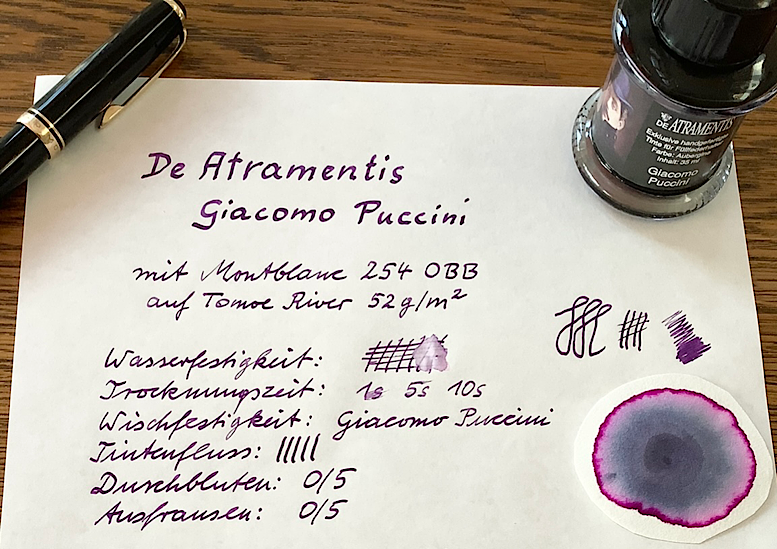 De Atramentis
Giacomo Puccini
mit Montblanc 254 OBB
auf Tomoe River 52g/m²
Wasserfestigkeit:
Trocknungszeit: 1s 5s 10s
Wischfestigkeit: Giacomo Puccini
Tintenfluss:
Durchbluten: 0/5
Ausfransen: 0/5
DE ATRAMENTIS
Exklusive handgefertigte
Tinte für Füllfederhalter
Farbe: Aubergine
Inhalt: 35 ml
Giacomo
Puccini